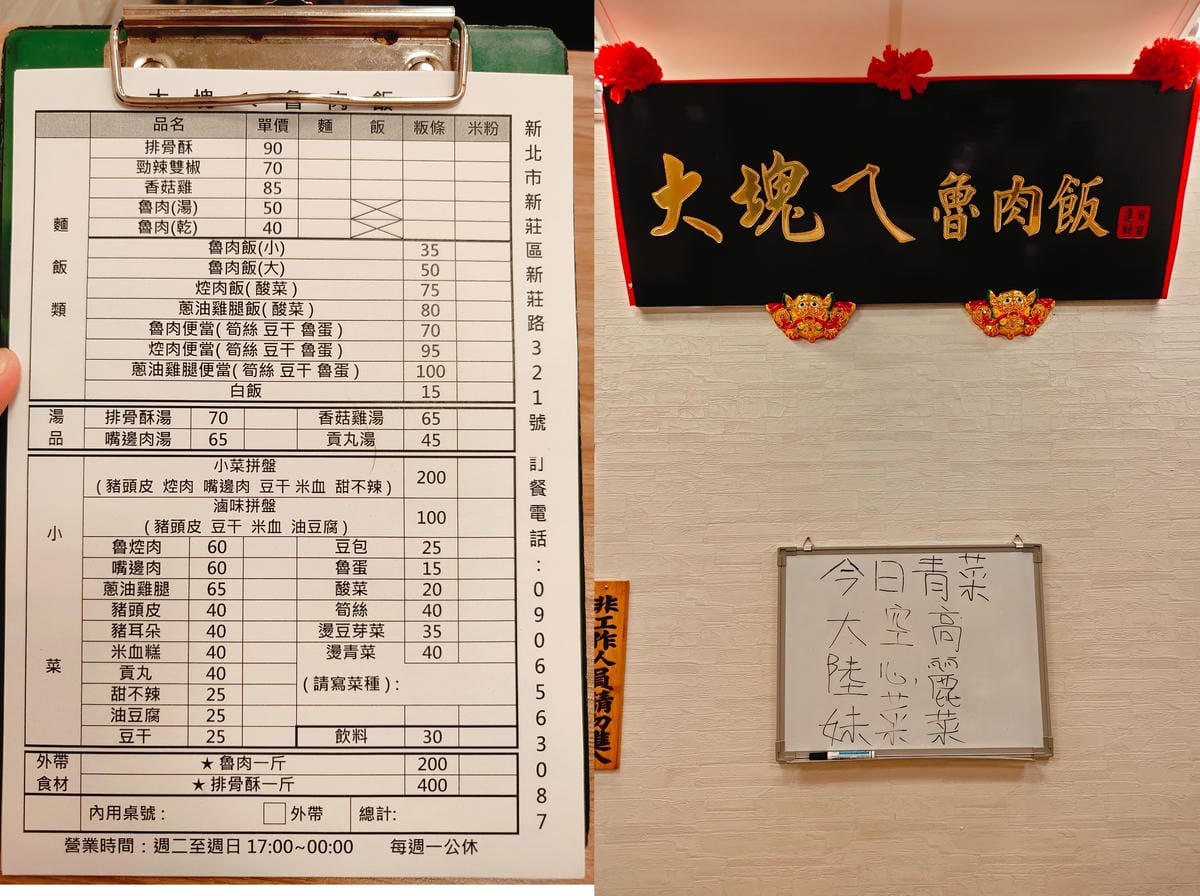 大塊ㄟ魯肉飯
品名 單價 麵 飯 粄條 米粉
麵飯類
排骨酥 90
勁辣雙椒 70
香菇雞 85
魯肉(湯) 50
魯肉(乾) 40
魯肉飯(小) 35
魯肉飯(大) 50
焢肉飯(酸菜) 75
蔥油雞腿飯(酸菜) 80
魯肉便當(筍絲 豆干 魯蛋) 70
焢肉便當(筍絲 豆干 魯蛋) 95
蔥油雞腿便當(筍絲 豆干 魯蛋) 100
白飯 15
湯品
排骨酥湯 70 香菇雞湯 65
嘴邊肉湯 65 貢丸湯 45
小菜
小菜拼盤
(豬頭皮 焢肉 嘴邊肉 豆干 米血 甜不辣) 200
滷味拼盤
(豬頭皮 豆干 米血 油豆腐) 100
魯焢肉 60 豆包 25
嘴邊肉 60 魯蛋 15
蔥油雞腿 65 酸菜 20
豬頭皮 40 筍絲 40
豬耳朵 40 燙豆芽菜 35
米血糕 40 燙青菜 40
貢丸 40 (請寫菜種):
甜不辣 25
油豆腐 25
豆干 25 飲料 30
外帶食材
★魯肉一斤 200
★排骨酥一斤 400
內用桌號: □外帶 總計:
營業時間:週二至週日 17:00~00:00 每週一公休
新北市新莊區新莊路321號 訂餐電話:0906563087
大塊ㄟ魯肉飯
日日進財
非工作人員請勿進入
今日青菜
高麗菜
空心菜
大陸妹